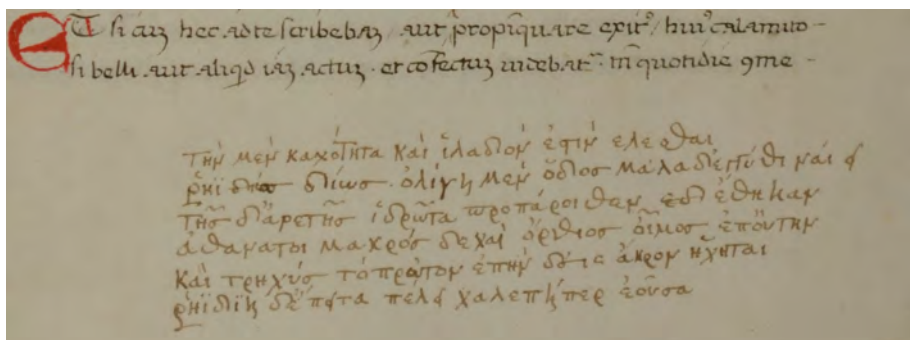 ET si cuz hec ad te scribebaz, aut ꝓpinquare exitꝰ, huiꝰ calamito-
si belli aut aliqd iaz actuz. et cōfectuz uidebatᷣ. tn̄ quotidie ꝯme-
τὴν μὲν καχότητα καὶ ἰλαδιόν ἐςιν ελεσθαι
ῥηϊ διως. ὀλίγη μὲν ὅδιος μάλα δ ναί ει
τῆς δἀρετῆς ἱδρῶτα προπάροιθεν εδι έθηκαν
ἀθανατοι μακρός δε χαὶ όρθιος οἷμος ἐπ αυτην
καὶ τρηχύς τὸ πρῶτον ἐπὴν δεις άκρον ἥχηται
ῥηϊδίη δἔπειτα πέλει χαλεπήπερ ἐοῦσα